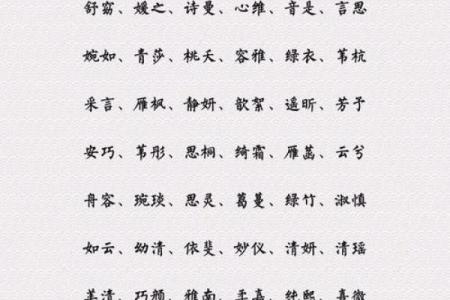 舒窈、媛之、诗曼、心维、音是、言思
婉如、青莎、桃夭、容雅、绿衣、苇杭
采言、雁枫、静妍、歆絮、遥昕、芳予
安巧、苇彤、思桐、绮霜、雁菡、云兮
舟容、琬琰、思灵、葛蔓、绿竹、淑慎
如云、幼清、依斐、妙仪、清妍、清瑶
美清、巧颜、雅南、王嘉、纯熙、嘉徽